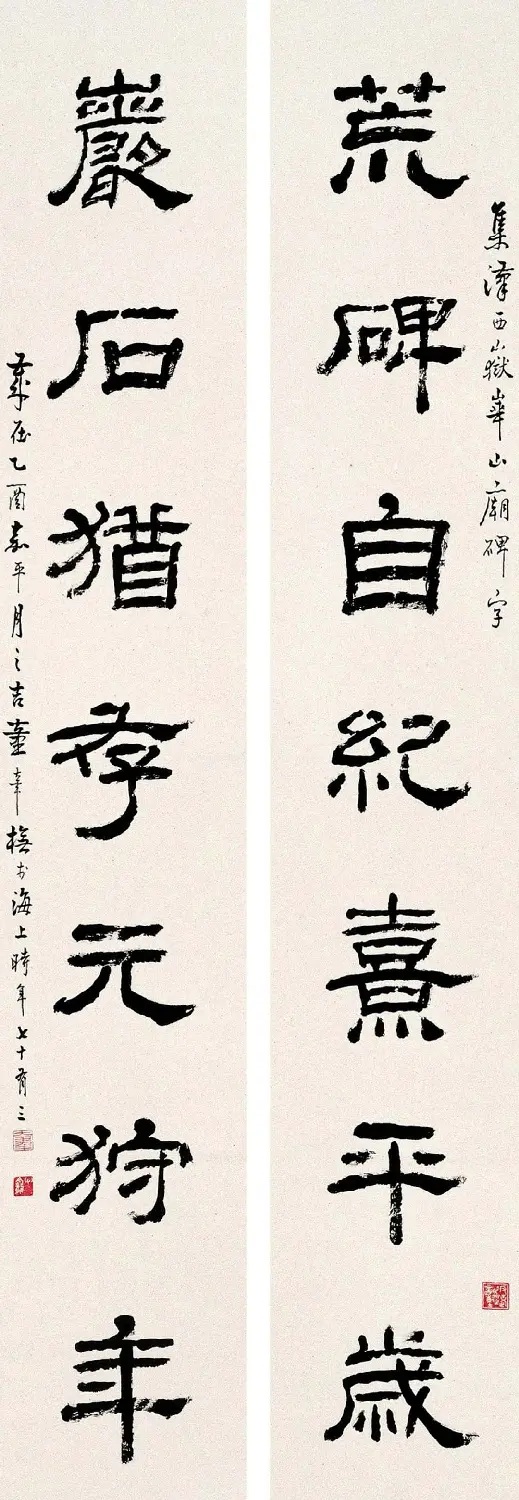 荒碑自紀熹平歲
集漢西嶽華山廟碑字
巖石猶存元狩年
歲在乙酉嘉平月之吉童橅於海上時年七十有三